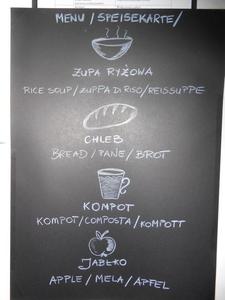 MENU / SPEISEKARTE /
ZUPA RYŻOWA
RICE SOUP / ZUPPA DI RISO / REISSUPPE
CHLEB
BREAD / PANE / BROT
KOMPOT
KOMPOT / COMPOSTA / KOMPOTT
JABŁKO
APPLE / MELA / APFEL